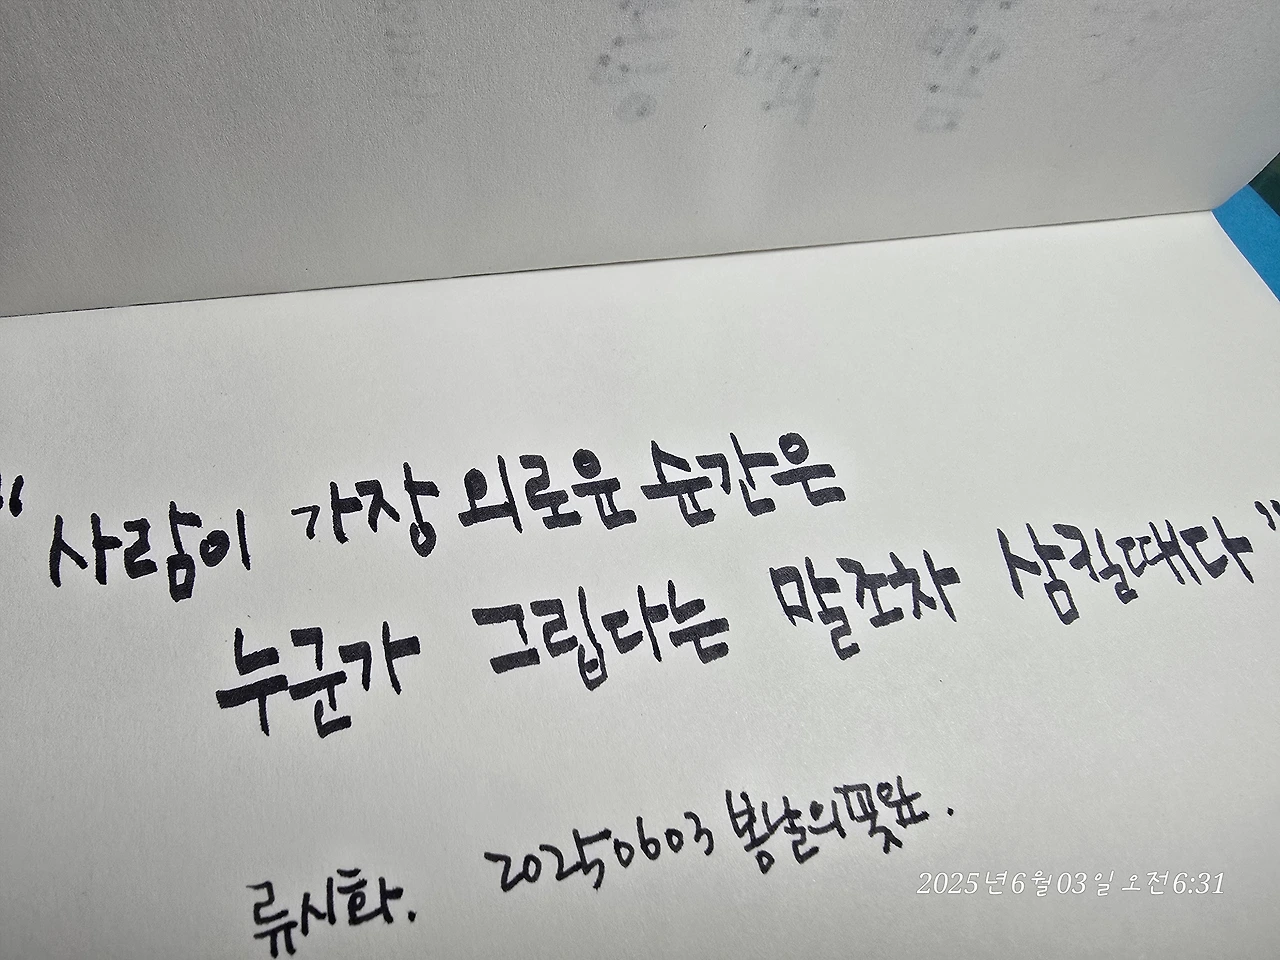 "사람이 가장 외로운 순간은
누군가 그립다는 말조차 삼킬때다"
류시화.
20250603 봉날의꽃잎.
2025년 6월 03일 오전 6:31